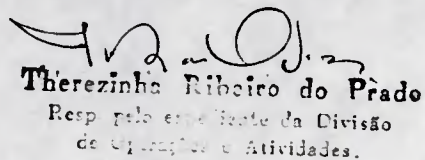 Therezinha Ribeiro do Prado
Resp. pelo expediente da Divisão
de Operações e Atividades.